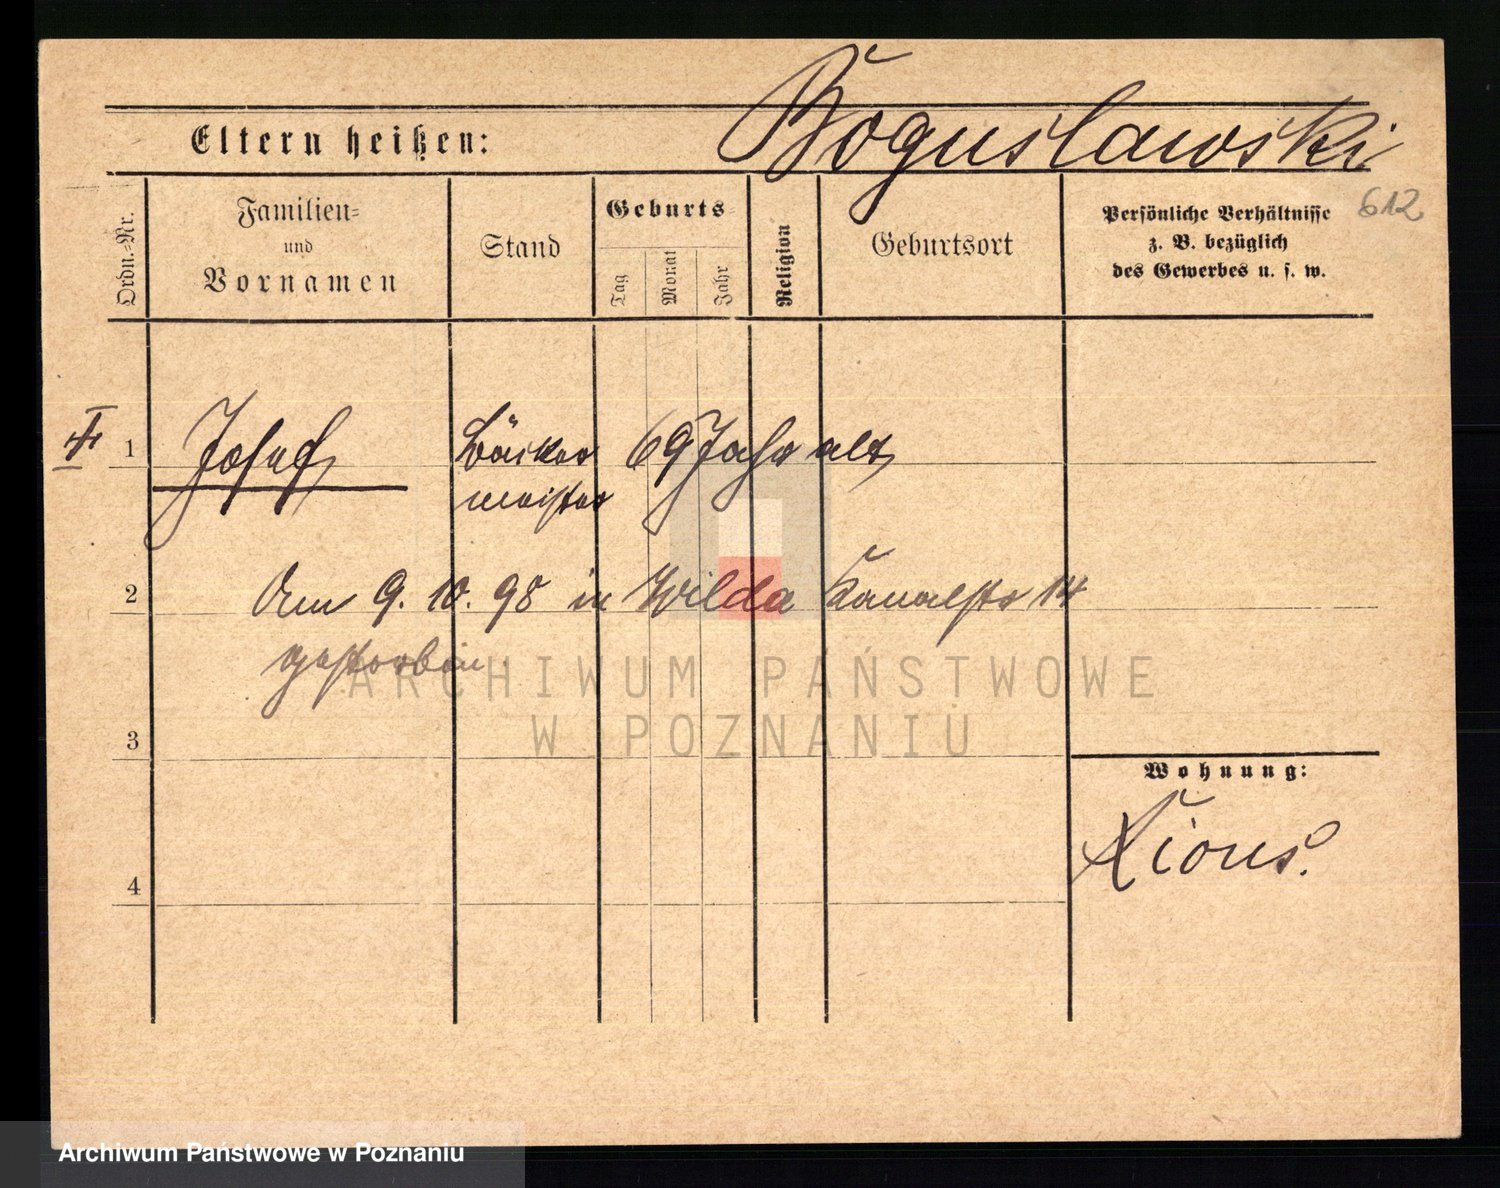 Boguslawski
Eltern heißen:
612
Ordn.-Nr.
Familien-
und
Vornamen
Stand
Geburts-
Tag
Monat
Jahr
Religion
Geburtsort
Persönliche Verhältnisse
z. B. bezüglich
des Gewerbes u. s. w.
1 Josef Bäcker 69 Jahr alt
meister
2 Am 9. 10. 98 in Wilda Kanalstr 14
gestorben.
ARCHIWUM PAŃSTWOWE
W POZNANIU
3
Wohnung:
Xions.
4
Archiwum Państwowe w Poznaniu